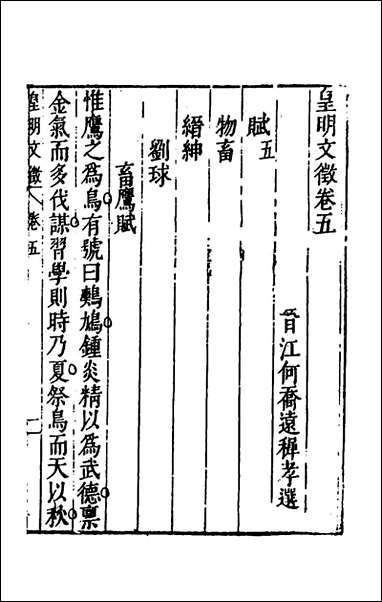 皇明文徵卷五
晉江何喬遠穉孝選
賦五
物畜
縉紳
劉球
畜鷹賦
惟鷹之爲鳥有號曰鷞鳩鍾炎精以爲武德禀
金氣而多伐謀習學則時乃夏祭鳥而天以秋
皇明文徵 卷五 一